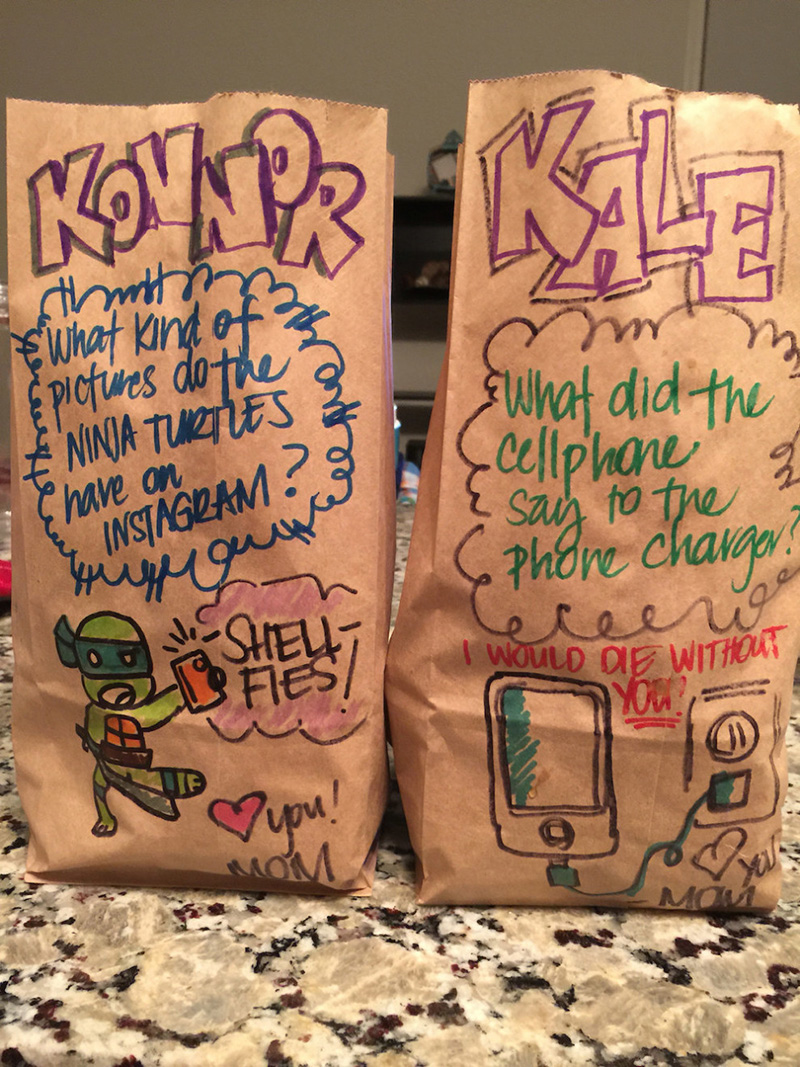 KONNOR
What kind of
pictures do the
NINJA TURTLES
have on
INSTAGRAM?
SHELL-
FIES!
you!
MOM
KALE
What did the
cellphone
say to the
phone charger?
I WOULD DIE WITHOUT
YOU!
YOU
MOM